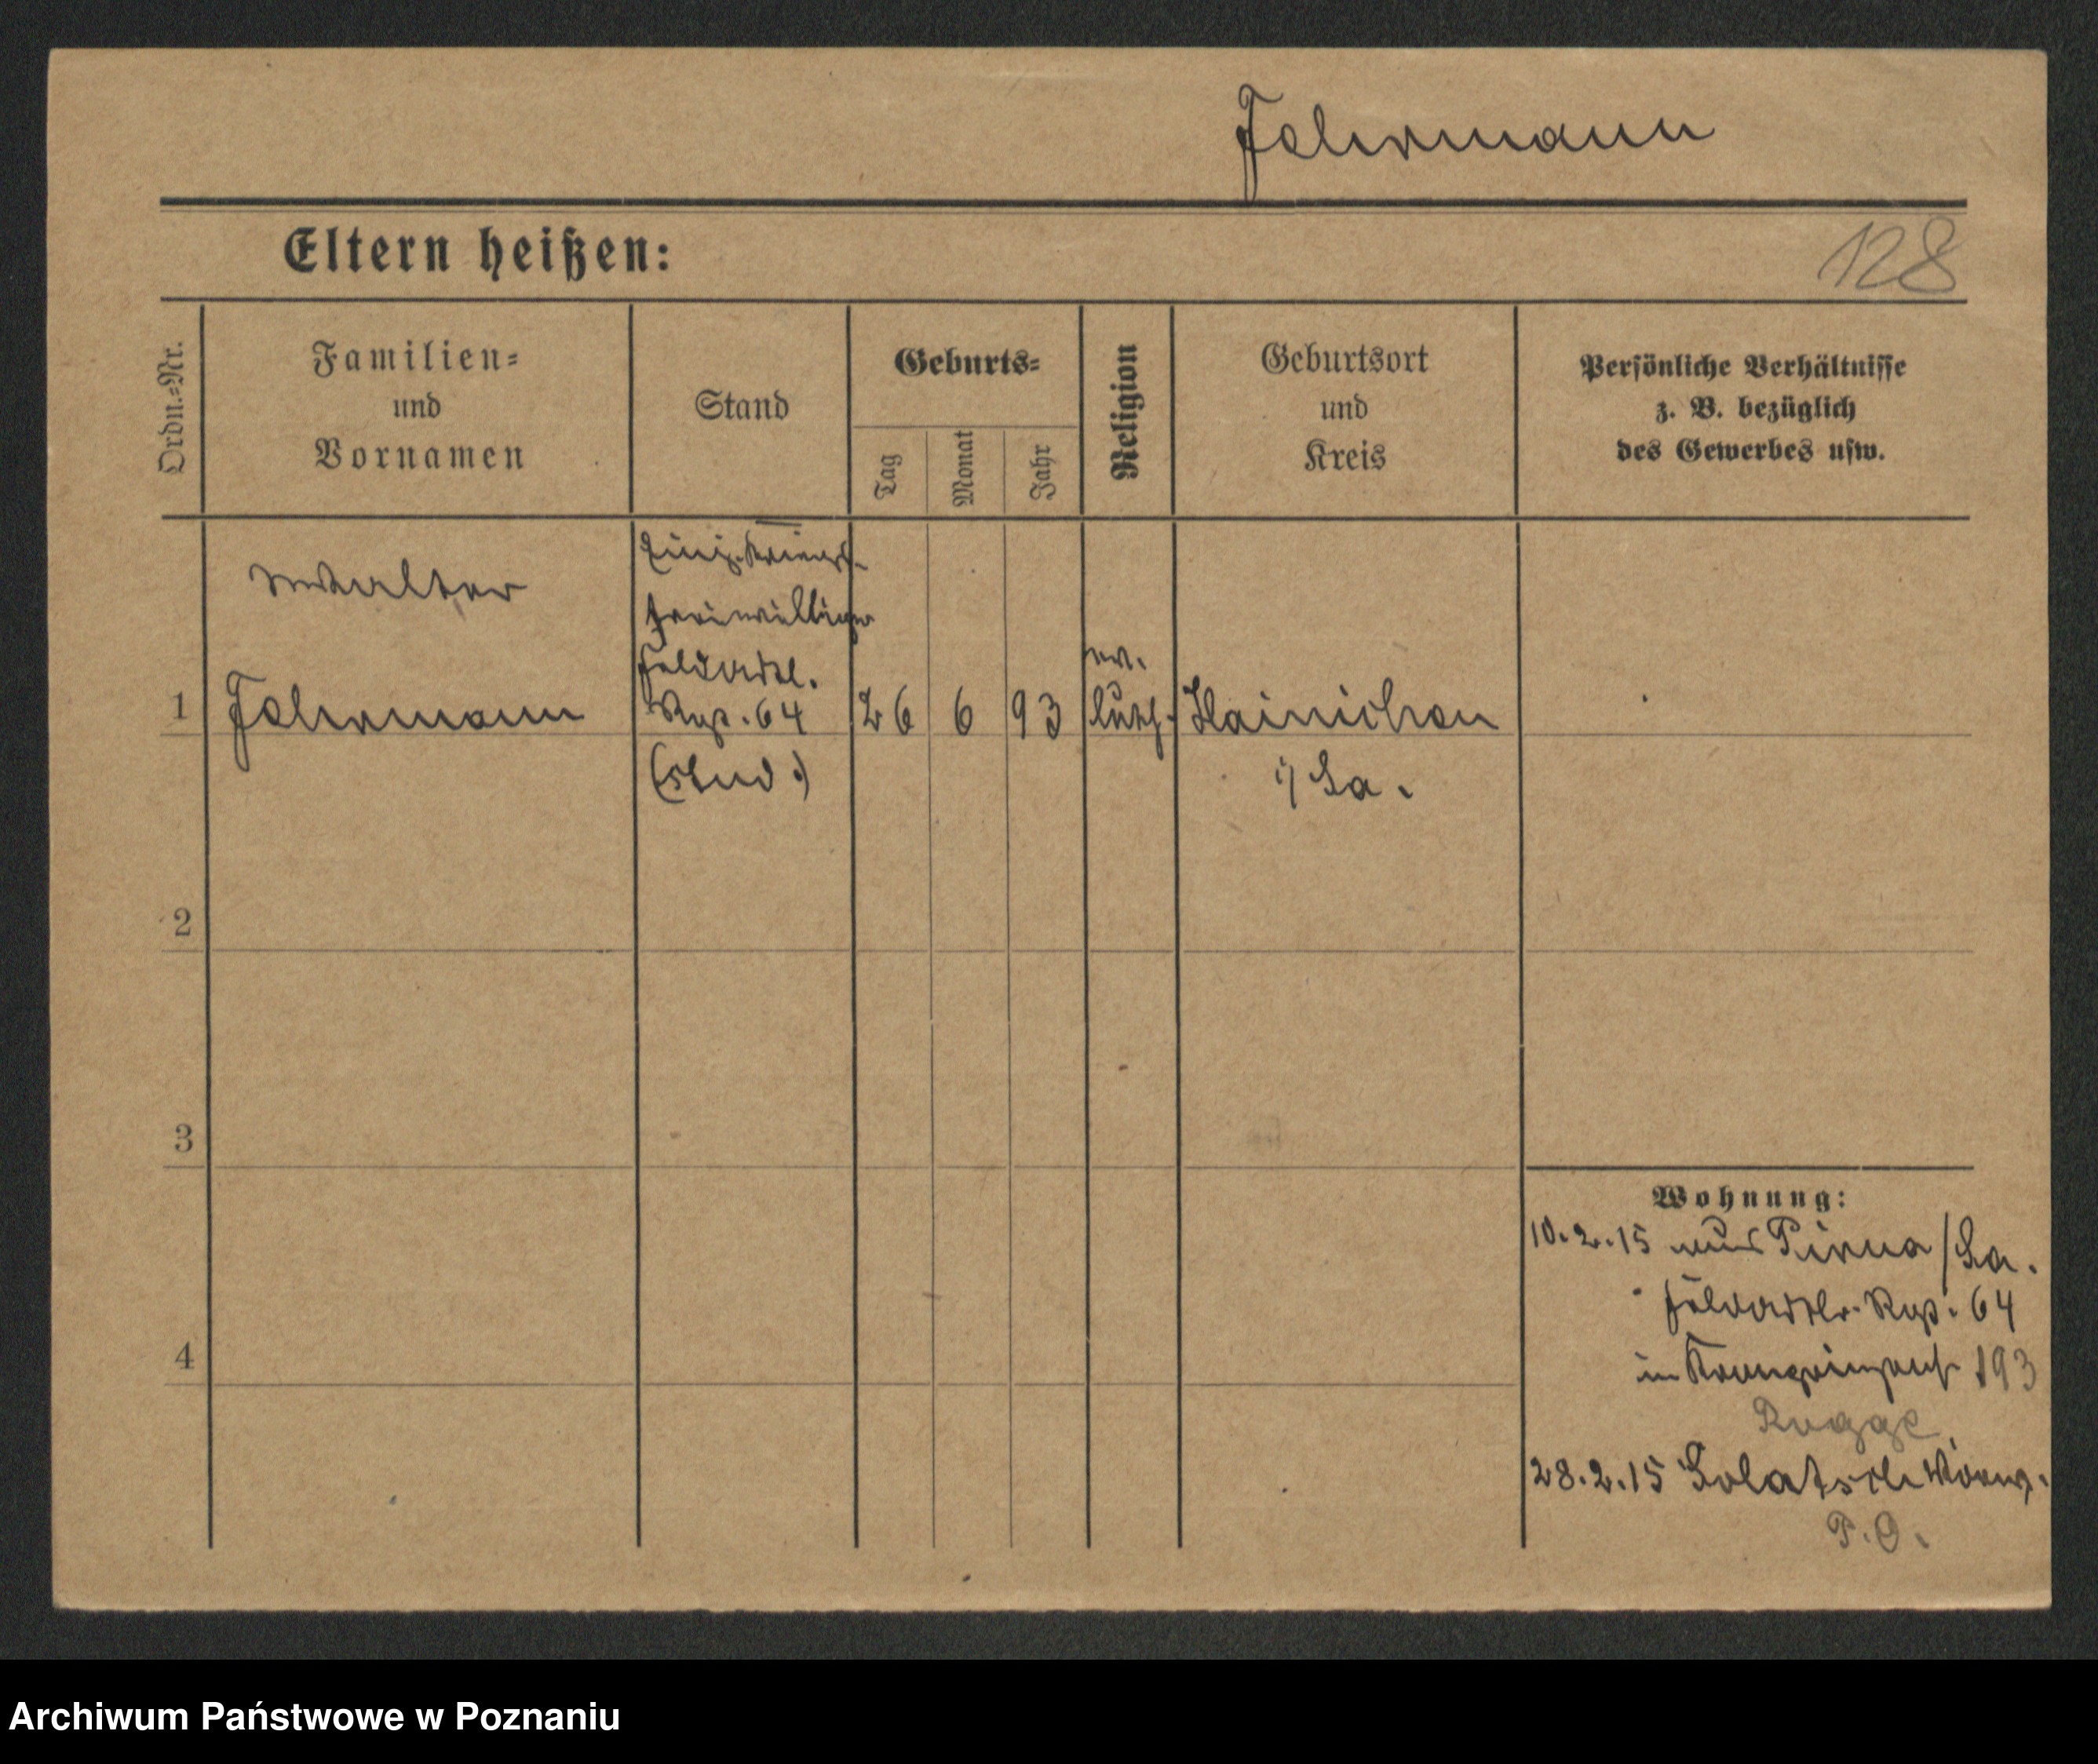 Fehrmann
Eltern heißen:
128
Ordn.=Nr.
Familien=
und
Vornamen
Stand
Geburts=
Tag
Monat
Jahr
Religion
Geburtsort
und
Kreis
Persönliche Verhältnisse
z. B. bezüglich
des Gewerbes usw.
Walter
Einj. Kriegs-
freiwilliger
Feldartl.
1
Fehrmann
Rgt. 64
26
6
93
ev.
luth.
Hainichen
(stud.)
i/Sa.
2
3
4
Wohnung:
10.2.15 aus Pirna/Sa.
Feldartlr. Rgt. 64
in Kronprinzenstr 193
Rogge
28.2.15 Solatsch
P.O.
Archiwum Państwowe w Poznaniu